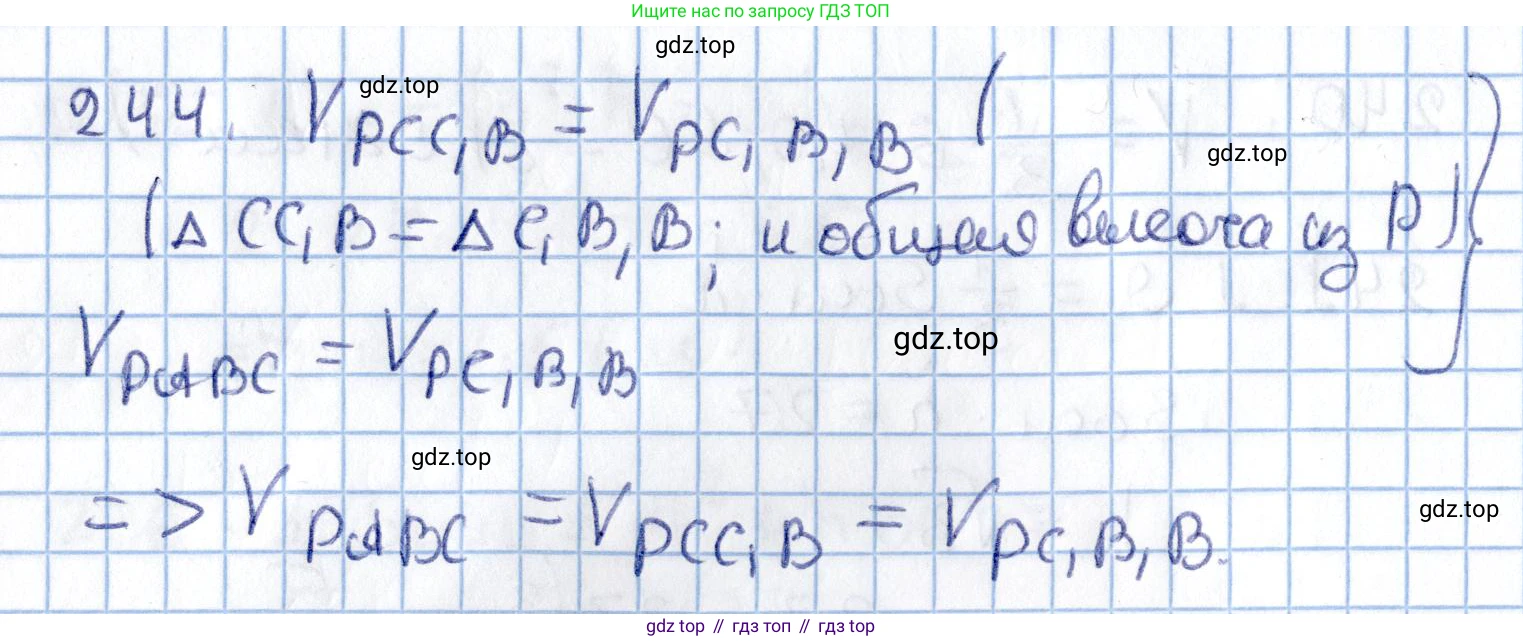 Ищите нас по запросу ГДЗ ТОП
gdz.top
gdz.top
244. V_PCC₁B = V_PC₁B₁B (
gdz.top
(Δ CC₁B = Δ C₁B₁B; и общая высота из P)}
V_PABC = V_PC₁B₁B
gdz.top
gdz.top
=> V_PABC = V_PCC₁B = V_PC₁B₁B.
gdz.top
gdz top // гдз топ // гдз top